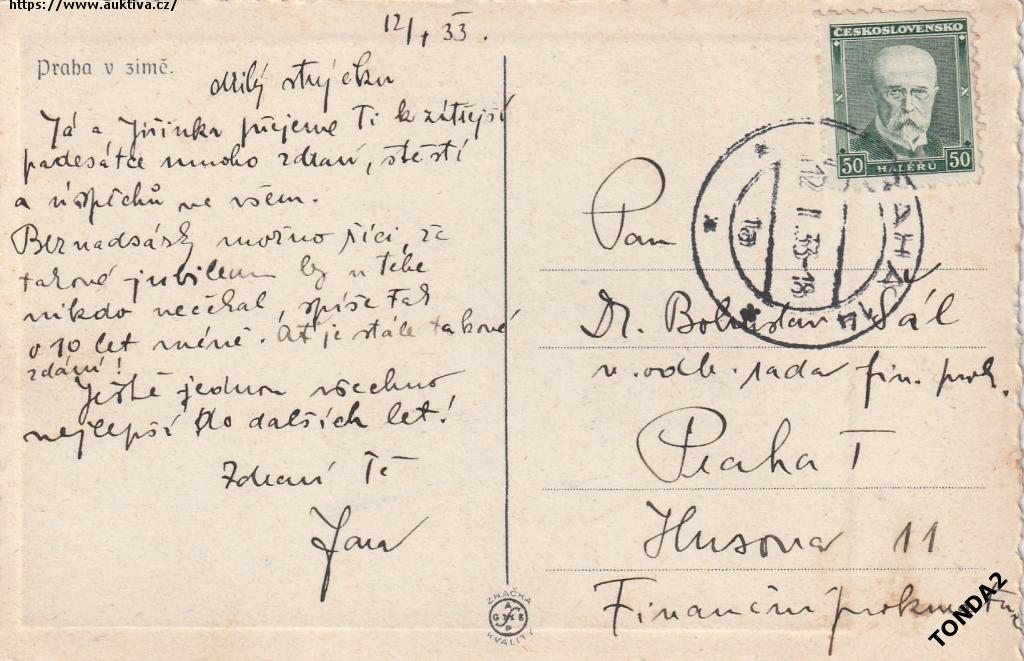 https://www.auktiva.cz/
12/I 33.
Praha v zimě.
Milý strýčku
Já a Jiřinka přejeme Ti k zítřejší
padesátce mnoho zdraví, štěstí
a úspěchů ve všem.
Beznadsázky možno říci, že
takové jubileum by u tebe
nikdo nečekal, spíše tak
o 10 let méně. Ať je stále takové
zdání!
Ještě jednou všechno
nejlepší do dalších let!
Zdraví Tě
Jara
ČESKOSLOVENSKO
50 HALÉŘŮ 50
PRAHA
12.II.33-18
1a
Pan
Dr. Bohuslav Šál
v. odb. rada fin. prok.
Praha I
Husova 11
Finanční prokuratura
ZNAČKA
KVALITY
TONDA2